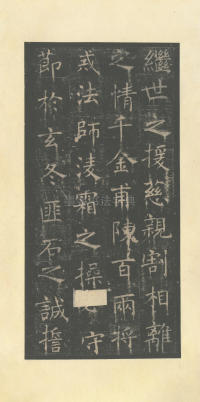 繼世之援慈親割相離
之情千金甫陳百兩将
戒法師淩霜之操守
節於玄冬匪石之誠擔